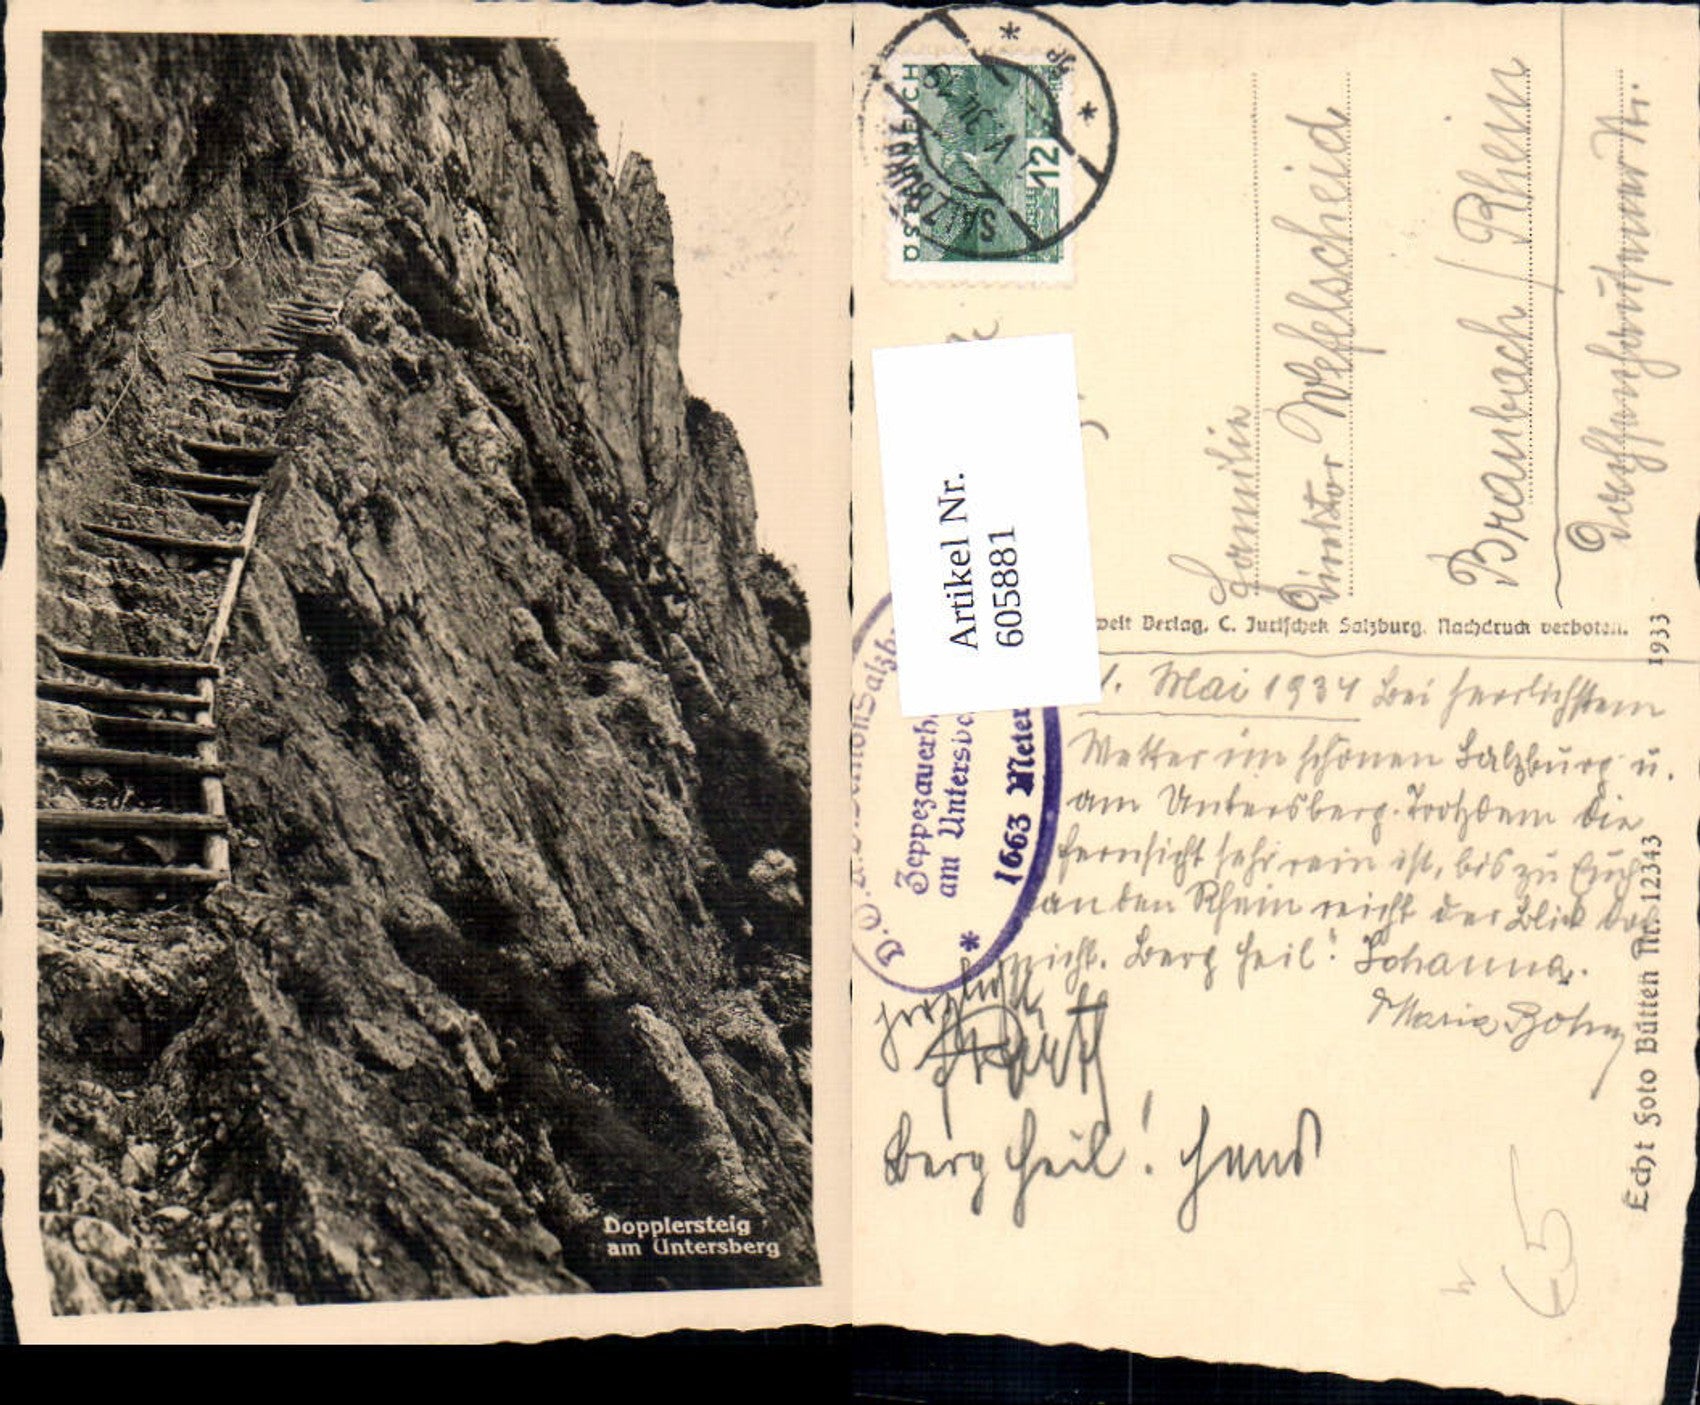 Dopplersteig
am Untersberg
ÖSTERREICH
12
SALZBURG
Artikel Nr.
605881
Zeppezauerh
am Untersb
1663 Meter
Familie
Direktor Wefelscheid
Braubach / Rhein
welt Verlag, C. Jurischek Salzburg. Nachdruck verboten.
1933
1. Mai 1934 Bei herrlichstem
Wetter im schönen Salzburg u.
am Untersberg. Trotzdem die
Fernsicht sehr rein ist, bis zu Euch
an den Rhein reicht der Blick doch
nicht. Berg Heil! Johanna.
Maria Böhm
herzlichst
Berg Heil! Hans
Echt Foto Bütten Nr. 12343
65